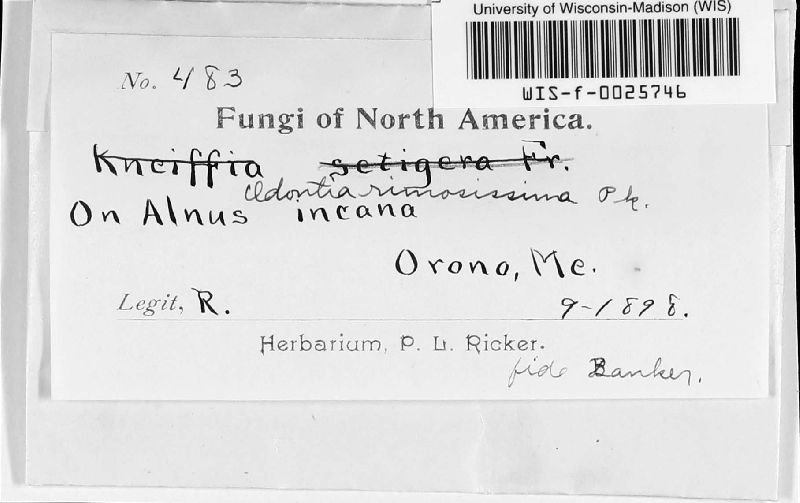 University of Wisconsin-Madison (WIS)
WIS-f-0025746
No. 483
Fungi of North America.
Kneiffia setigera Fr.
Odontia rimosissima Pk.
On Alnus incana
Orono, Me.
Legit, R. 9-1898.
Herbarium, P. L. Ricker.
fide Banker.